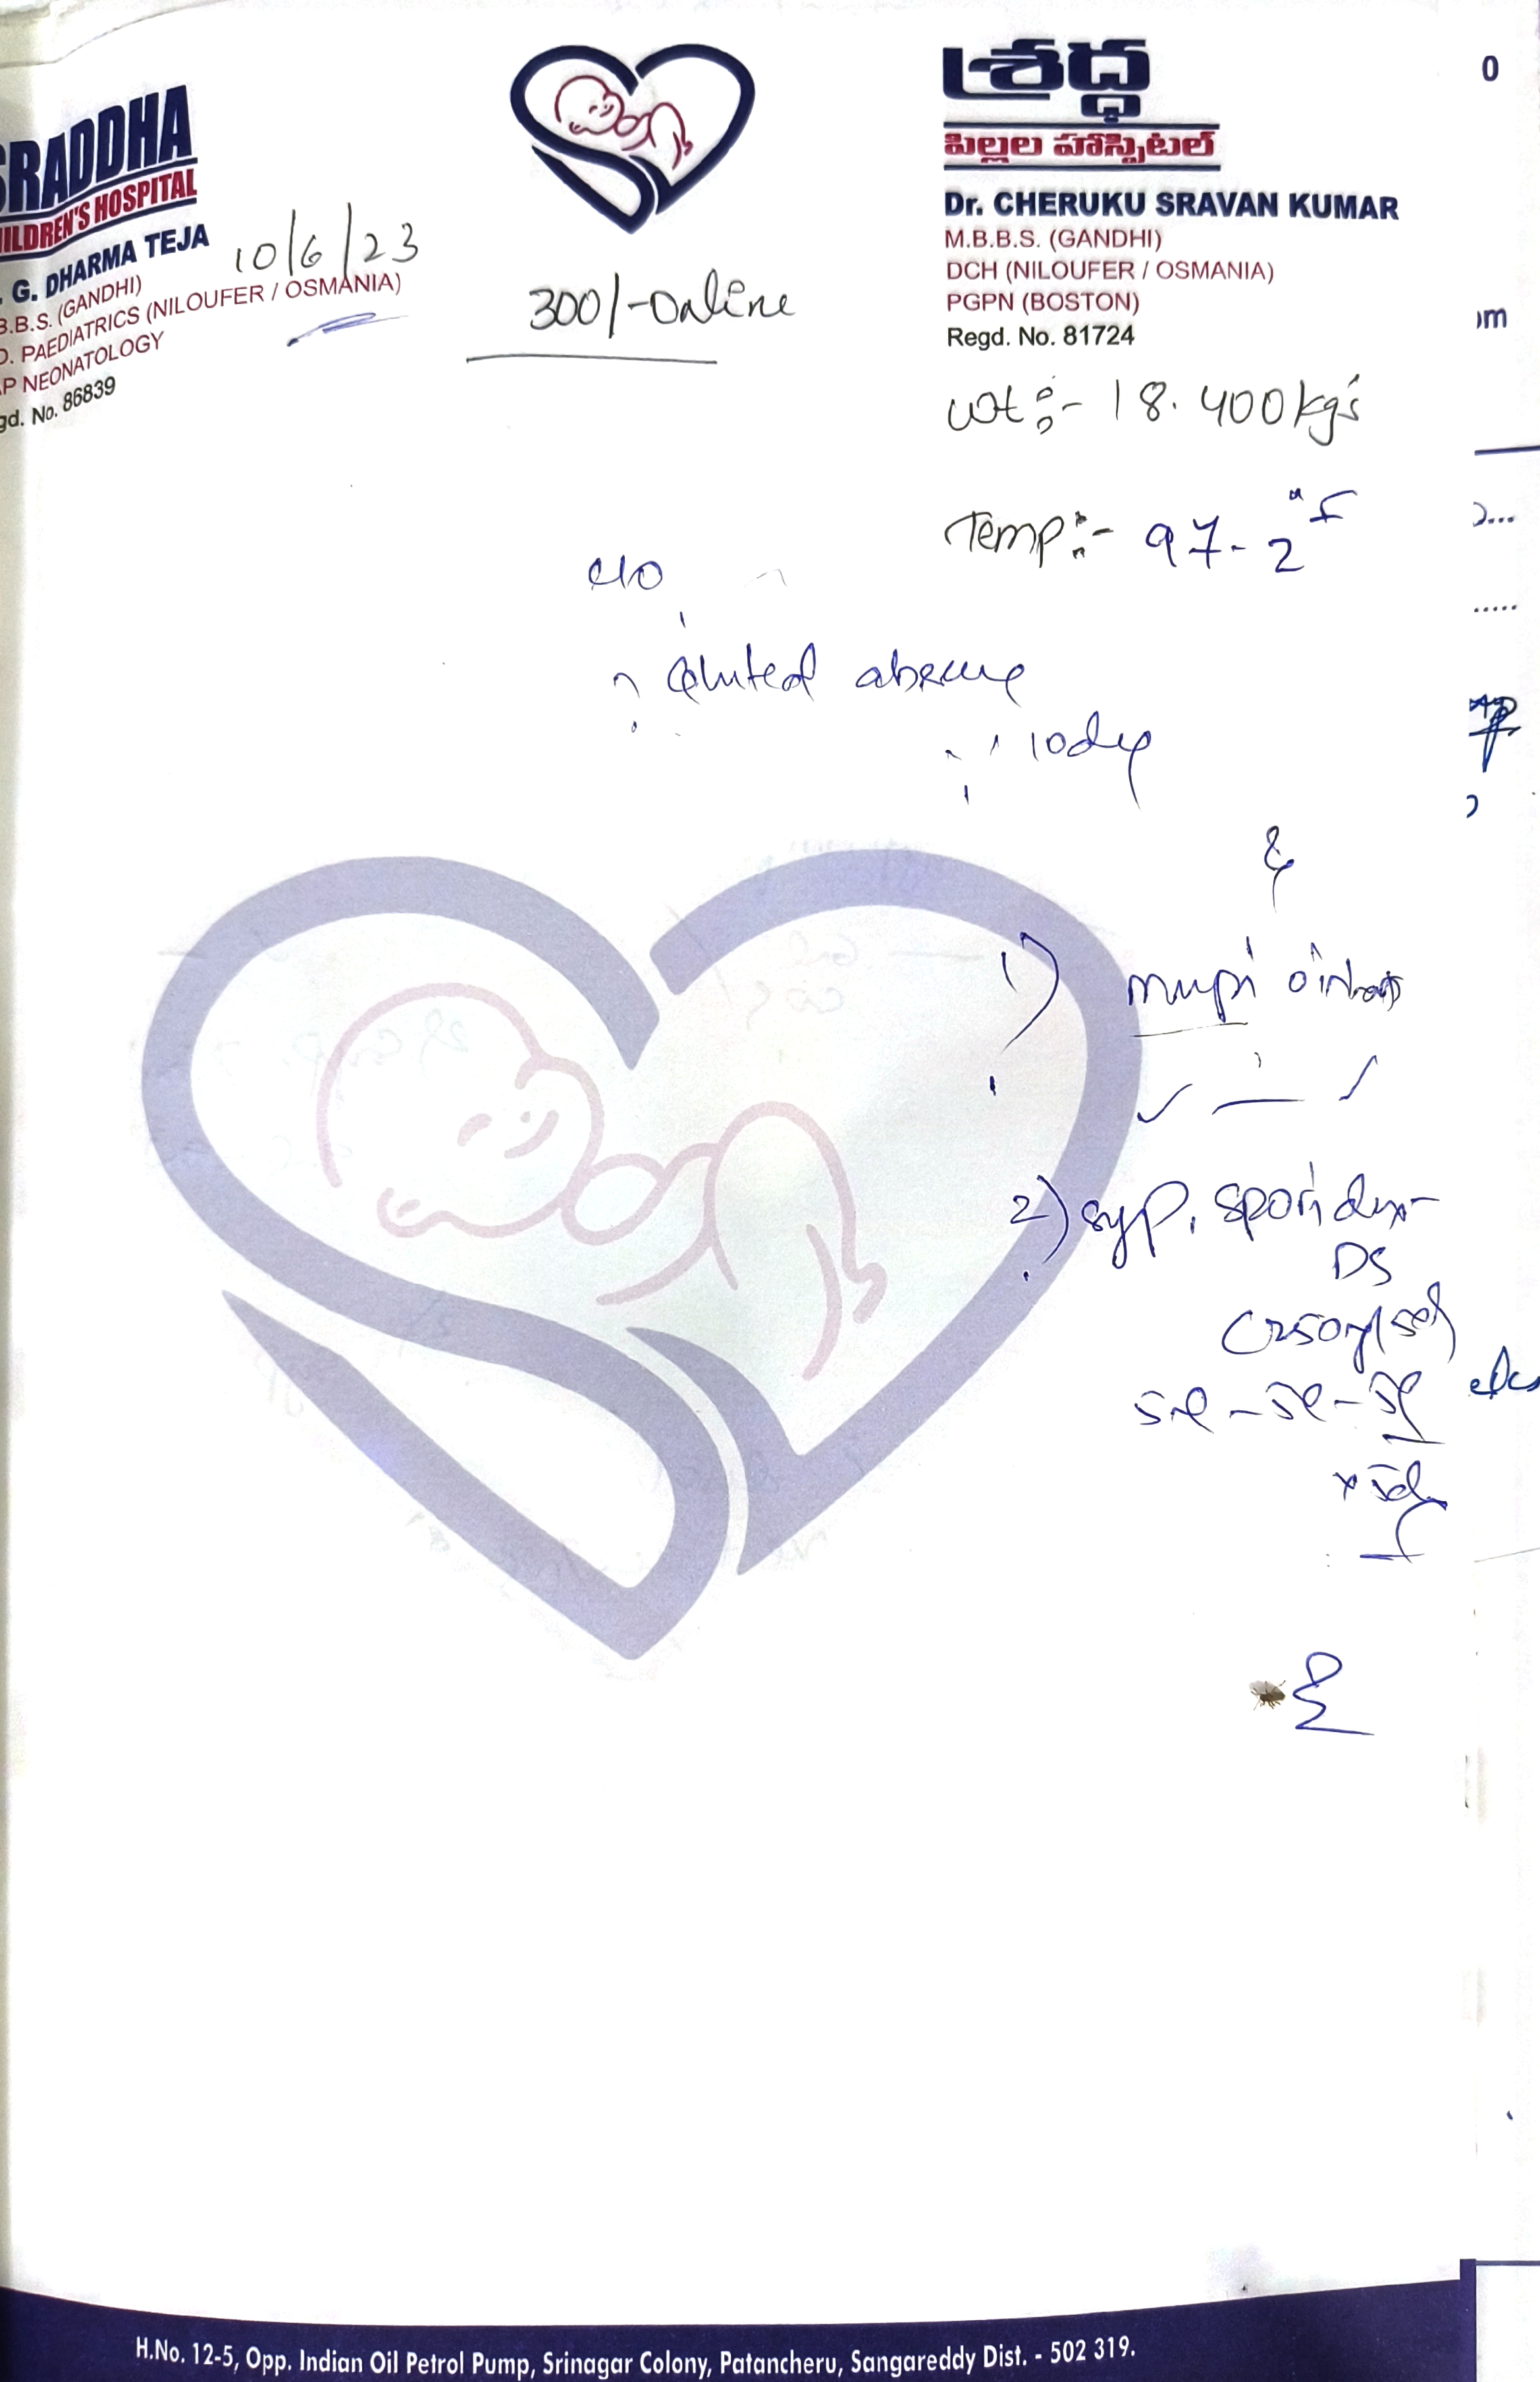 SRADDHA
ILDREN'S HOSPITAL
. G. DHARMA TEJA
B.B.S. (GANDHI)
D. PAEDIATRICS (NILOUFER / OSMANIA)
AP NEONATOLOGY
gd. No. 86839
10/6/23
300/-online
శ్రద్ధ
పిల్లల హాస్పిటల్
Dr. CHERUKU SRAVAN KUMAR
M.B.B.S. (GANDHI)
DCH (NILOUFER / OSMANIA)
PGPN (BOSTON)
Regd. No. 81724
0
om
wt:- 18.400kg's
Temp:- 97-2°F
c/o
10day
1) mupi
2) syp. sporidex
DS
(250mg/5ml)
5ml - 5ml - 5ml
x 5d
H.No. 12-5, Opp. Indian Oil Petrol Pump, Srinagar Colony, Patancheru, Sangareddy Dist. - 502 319.